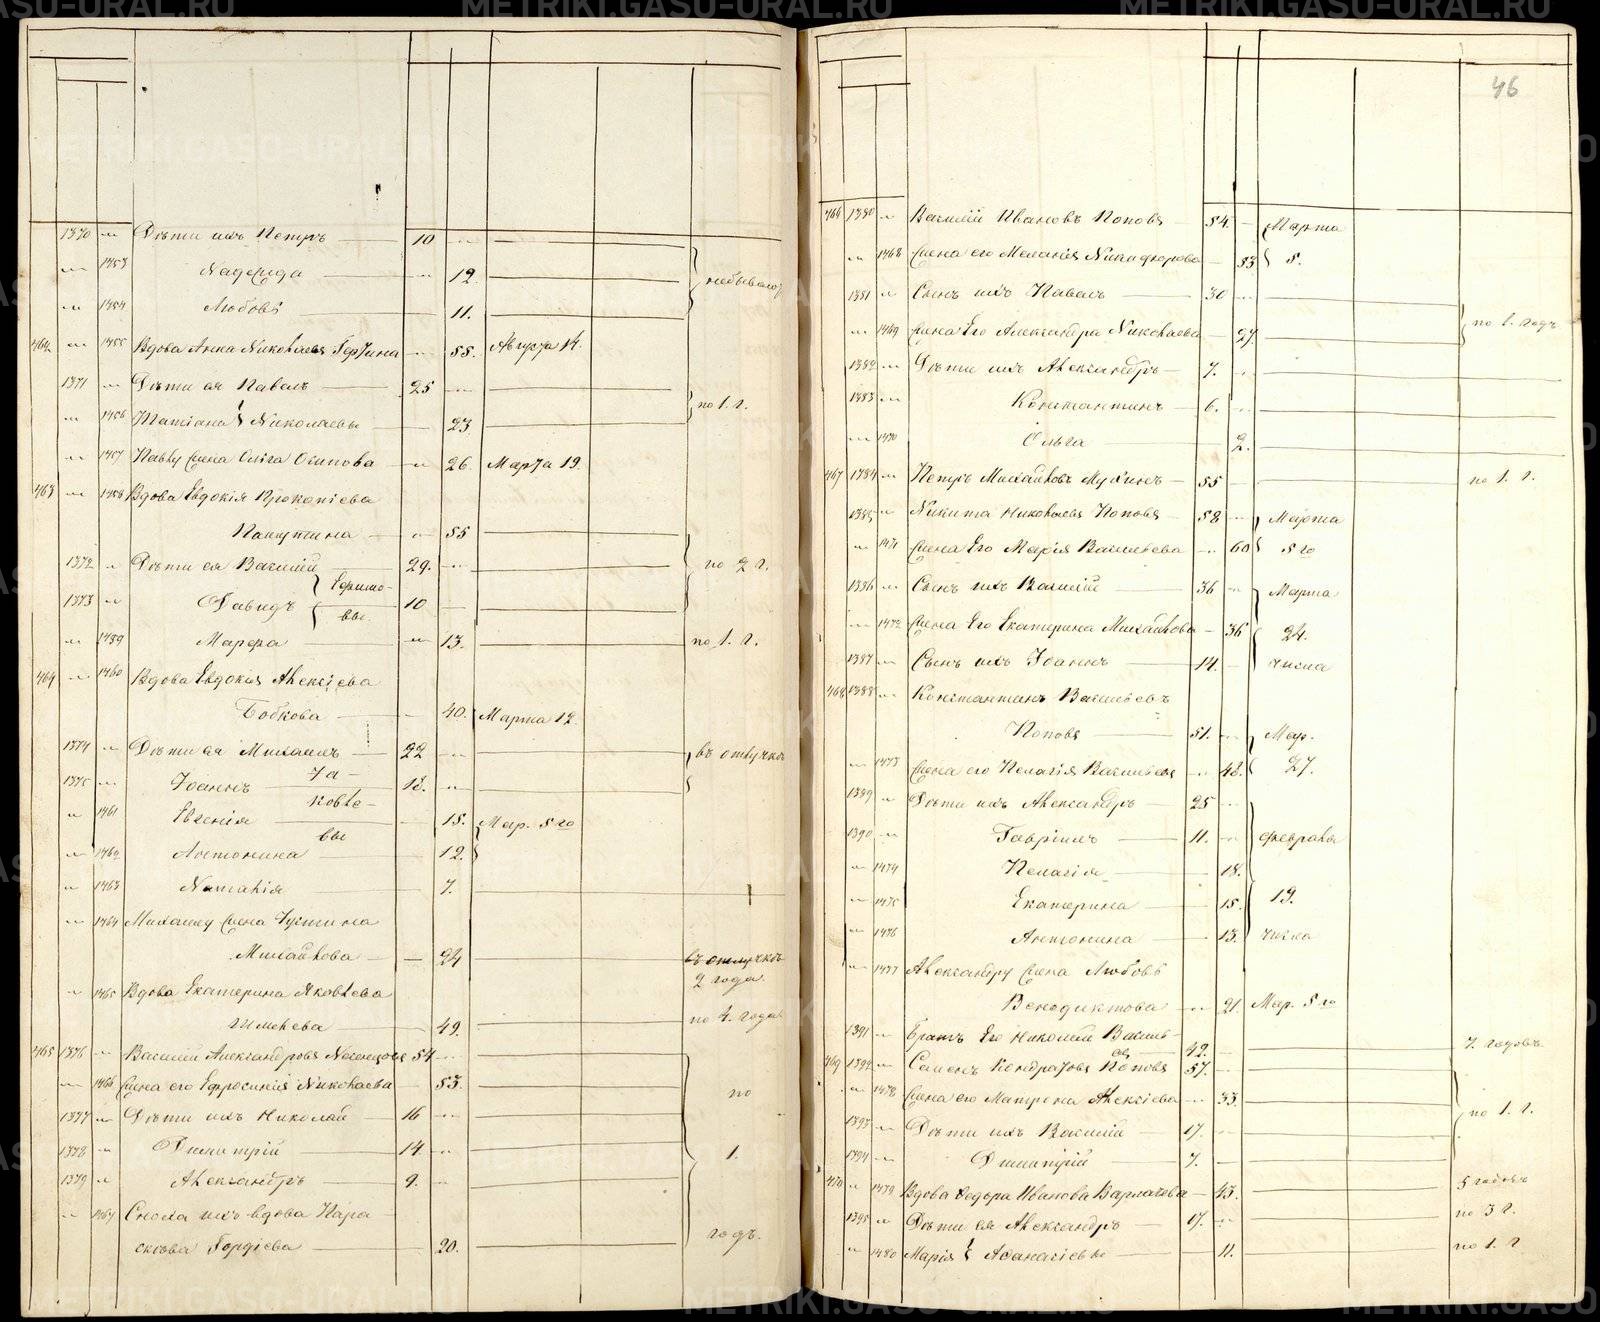 1370 Дѣти ихъ Петръ 10
1453 Надежда 12.
небывало
1454 Любовь 11.
462 1455 Вдова Анна Николаева 55. Августа 14.
1371 Дѣти ея Павелъ 25
по 1. г.
1456 Татіана Николаевы 23
1457 Павлу жена Ольга Осипова 26. Марта 19.
463 1458 Вдова Евдокія Прокопіева
55
1372 Дѣти ея Василій 29.
по 2 г.
1373 Давидъ 10
вы.
1459 Марфа 13. по 1. г.
464 1460 Вдова Евдокія Алексіева
Бобкова 40. Марта 12.
1374 Дѣти ея Михаилъ 22 въ отлучкѣ
Іа-
1375 Іоаннъ 18.
ковле-
1461 Евгенія 15. Мар. 5 го
вы
1462 Антонина 12.
1463 Наталія 7.
1464 Михаилу жена Іустина
Михайлова 24 въ отлучкѣ
2 года
1465 Вдова Екатерина Яковлева
49. по 4. года
465 1376 Василій Александровъ 54
1466 Жена его Ефросинія Николаева 53.
по
1377 Дѣти ихъ Николай 16
1378 Димитрій 14
1.
1379 Александръ 9.
1467 Сноха ихъ вдова Пара
скева Гордіева 20.
годъ.
46
466 1380 Василій Ивановъ Поповъ 54. Марта
1468 Жена его Меланія Никифорова 53 5.
1381 Сынъ ихъ Павелъ 30
по 1. годъ
1469 Жена Его Александра Николаева 27.
1382 Дѣти ихъ Александръ 7.
1383 Константинъ 6.
1470 Ольга 2.
467 1384 Петръ Михайловъ Мухинъ 55 по 1. г.
1385 Никита Николаевъ Поповъ 58 Марта
1471 Жена Его Марія Васильева 60 5 го
1386 Сынъ ихъ Василій 36 Марта
1472 Жена Его Екатерина Михайлова 36 24.
1387 Сынъ ихъ Іоаннъ 14. числа
468 1388 Константинъ Васильевъ
Поповъ 51. Мар.
1473 Жена его Пелагія Васильева 48. 27.
1389 Дѣти ихъ Александръ 25
1390 Гавріилъ 11. февраля
1474 Пелагія 18.
1475 Екатерина 15. 19.
1476 Антонина 13. числа
1477 Александру жена Любовь
Венедиктова 21. Мар. 5 го
1391 Братъ Его Николай Василь-
евъ 42. 7. годовъ
469 1392 Семенъ Кондратовъ Поповъ 57.
1478 Жена его Матрона Алексіева 33.
по 1. г.
1393 Дѣти ихъ Василій 17.
1394 Димитрій 7.
470 1479 Вдова Федора Иванова 43. 5 годовъ
1395 Дѣти ея Александръ 17. по 3 г.
1480 Марія Афанасіевы 11. по 1. г